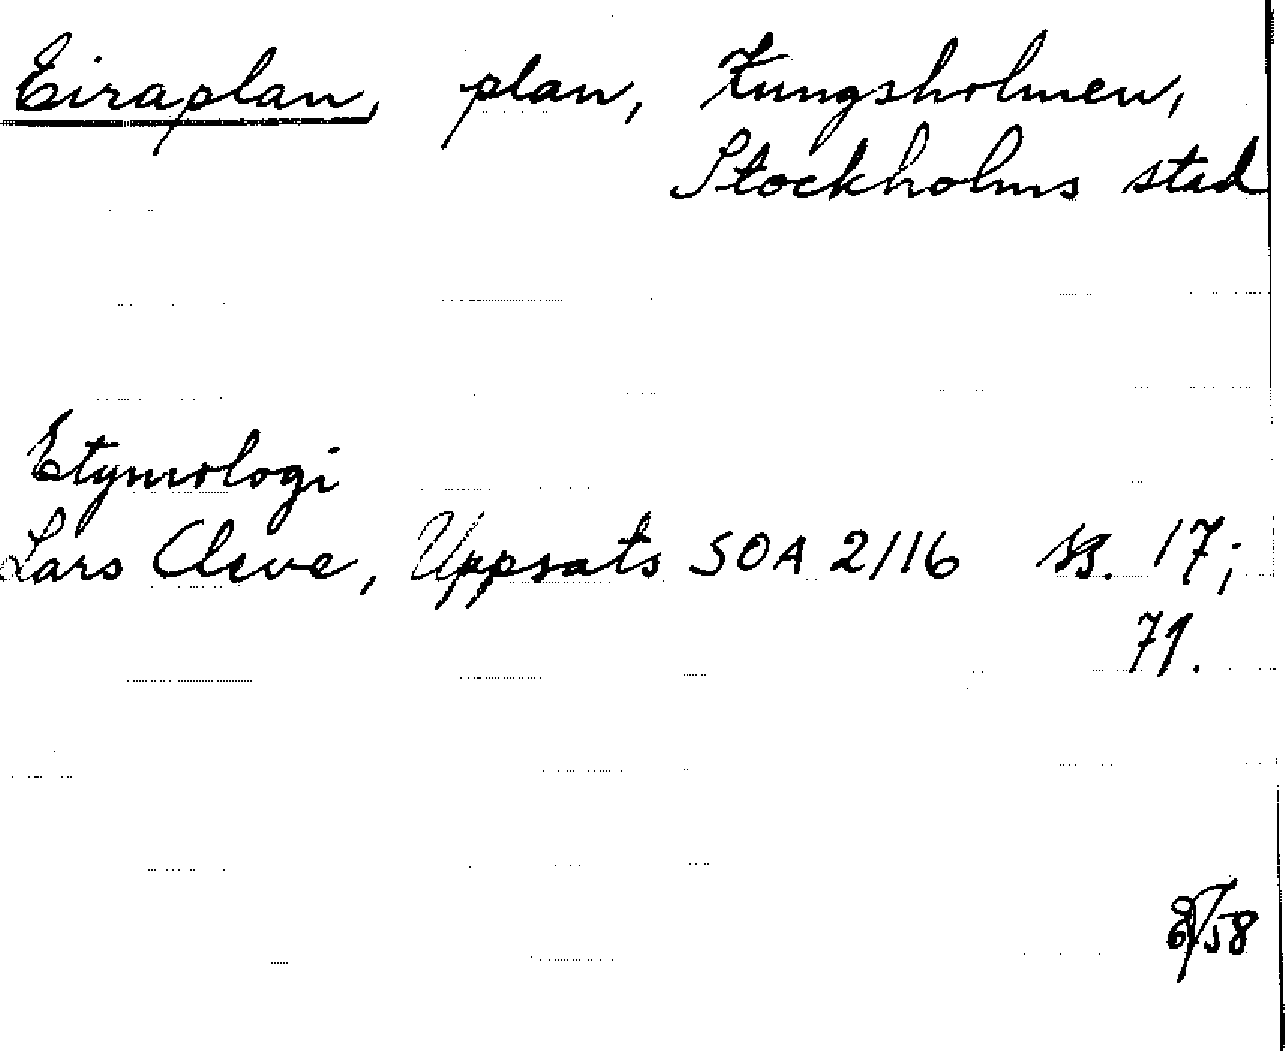 Eiraplan, plan, Kungsholmen,
Stockholms stad
Etymologi
Lars Cleve, Uppsats SOA 2/16 ss. 17;
71.